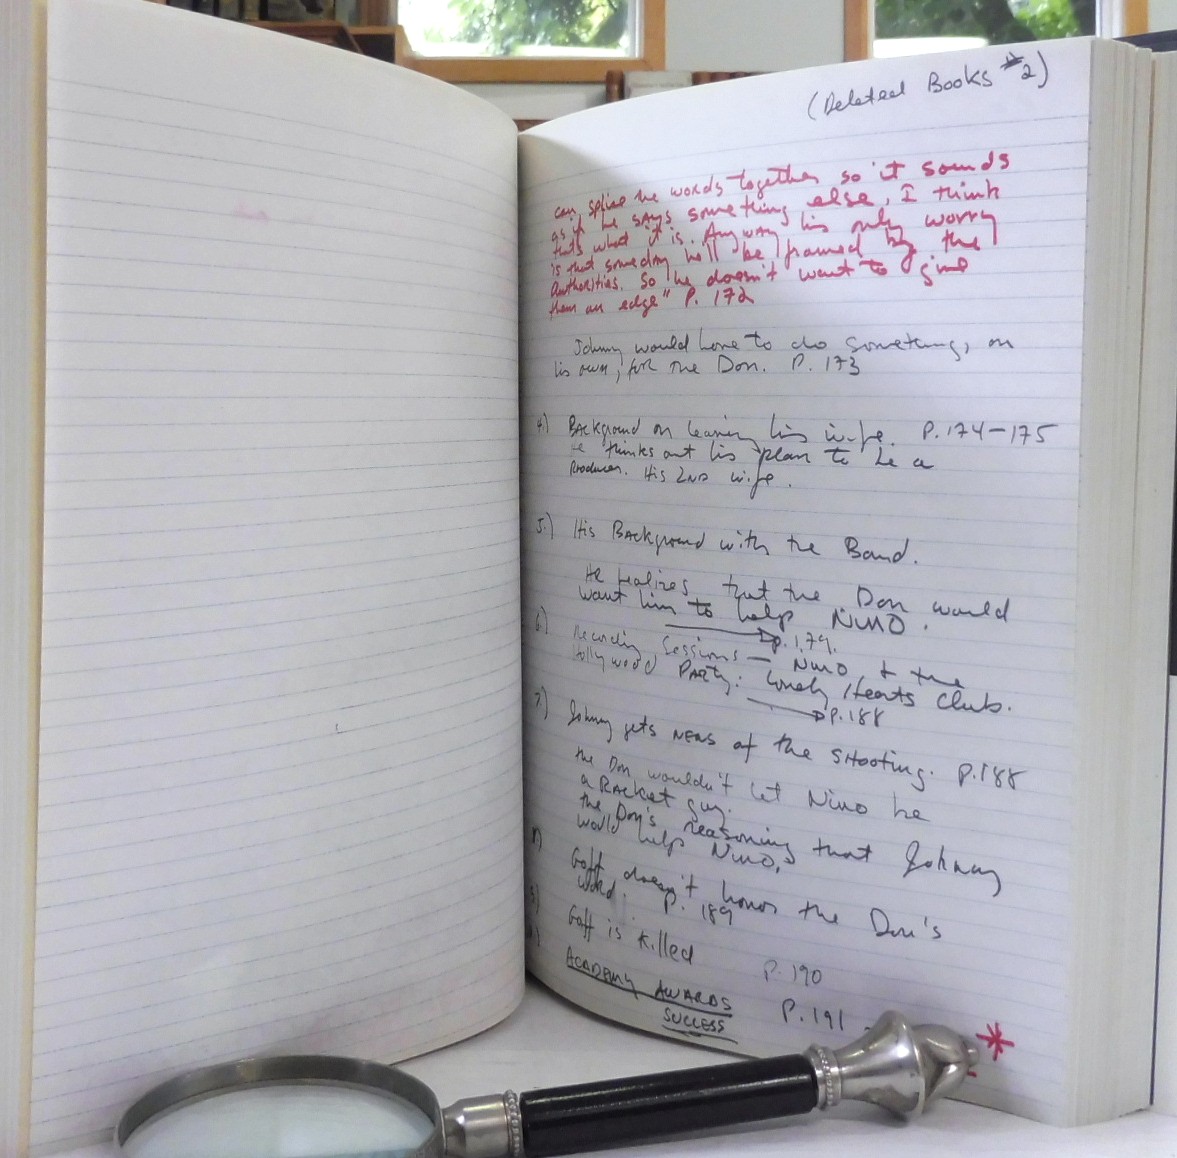 (Deleted Books #2)
can splice the words together so it sounds
as if he says something else, I think
that's what it is. Anyway his only worry
is that someday he'll be framed by the
Authorities. So he doesn't want to give
them an edge" P. 172
Johnny would have to do something, on
his own, for the Don. P. 173
4.) Background on leaving his wife. P. 174-175
He thinks out his plan to be a
Producer. His 2nd wife.
5.) His Background with the Band.
He realizes that the Don would
want him to help NiNO.
P. 179.
6.) Recording Sessions — NiNO & the
Hollywood PARTy: Lonely Hearts Club.
P. 188
7.) Johnny gets NEWS of the SHooting. P. 188
the Don wouldn't let Nino be
a RAcket guy.
the Don's reasoning that Johnny
would help NiNO.
Goff doesn't honor the Don's
word. P. 189
Goff is killed P. 190
ACADEMY AWARDS P. 191
SUCCESS